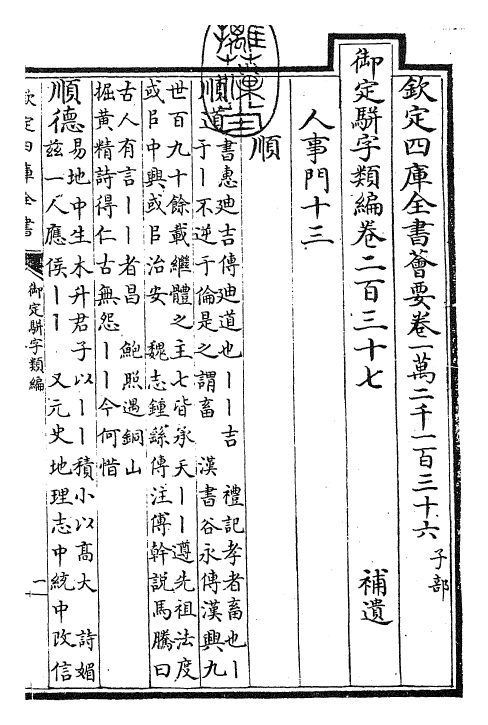 欽定四庫全書薈要卷一萬二千一百三十六 子部
御定駢字類編卷二百三十七 補遺
人事門十三
順
順道
書惠廸吉傳廸道也丨丨吉 禮記孝者畜也丨
于丨不逆于倫是之謂畜 漢書谷永傳漢興九
世百九十餘載繼體之主七皆承天丨丨遵先祖法度
或㠯中興或㠯治安 魏志鍾繇傳注傅幹説馬騰曰
古人有言丨丨者昌 鮑照遇銅山
掘黄精詩得仁古無怨丨丨今何惜
順德
易地中生木升君子以丨丨積小以髙大 詩媚
兹一人應侯丨丨 又元史地理志中統中改信
欽定四庫全書
御定駢字類編
一